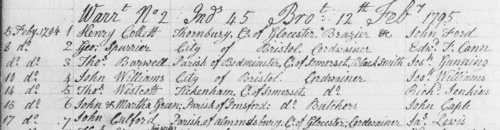 Warrt No 2 Ind 45 Brot 12th Feby 1795
5 Feby 1794 1 Henry Collett Thornbury, Co of Glocester Brazier &c John Ford
8 do 2 Geo: Spurrier City of Bristol Cordwainer Edwd T. Cann
do do 3 Thos Barwell Parish of Bedminster, Co of Somerset, Black Smith Jos: Gunning
10 do 4 John Williams City of Bristol Cordwainer Jos: Williams
14 do 5 Thos Westcott Tickenham, Co of Somerset do Richd Jenkins
15 do 6 John & Martha Green; Parish of Pensford; do Butchers John Cagle
17 do 7 John Culford Parish of almondsbury, Co of Glocester; Cordwainer Jas Lewis